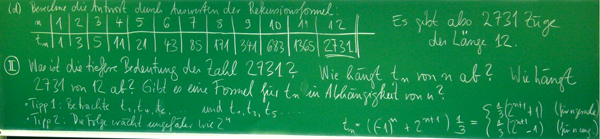 (d) Berechne die Antwort durch Auswerten der Rekursionsformel:
n | 1 | 2 | 3 | 4 | 5 | 6 | 7 | 8 | 9 | 10 | 11 | 12
tn | 1 | 3 | 5 | 11 | 21 | 43 | 85 | 171 | 341 | 683 | 1365 | 2731
Es gibt also 2731 Züge
der Länge 12.
II Was ist die tiefere Bedeutung der Zahl 2731? Wie hängt tn von n ab? Wie hängt
2731 von 12 ab? Gibt es eine Formel für tn in Abhängigkeit von n?
• Tipp 1: Betrachte t2, t4, t6, ... und t1, t3, t5 ....
• Tipp 2: Die Folge wächst ungefähr wie 2^n
tn = ((-1)^n + 2^(n+1)) 1/3 = { 1/3 (2^(n+1) + 1) (für n gerade)
1/3 (2^(n+1) - 1) (für n ung